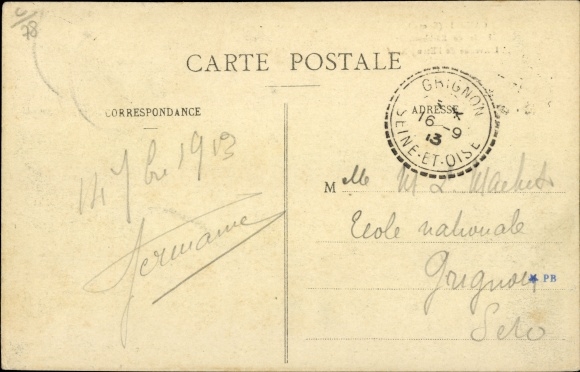 C/78
CARTE POSTALE
CORRESPONDANCE
ADRESSE
GRIGNON
5 X
16 -9
13
SEINE-ET-OISE
14 7bre 1913
Germaine
M lle M L.
Ecole nationale
Grignon
PB
Seto